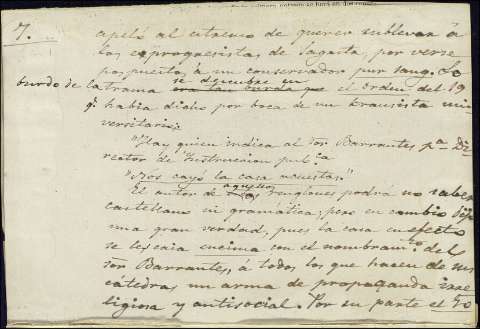 7.
apeló al estremo de querer sublevar á
los exprogresistas de Sagasta, por verse
pospuesto á un conservador pur sang. Lo
burdo de la trama se descubre en el Orden del 19
q.e habia dicho por boca de un krausista uni-
versitario:
"Hay quien indica al Sor Barrantes p.a Di-
rector de Instruccion pub.ca
"Nos cayó la casa acuestas."
El autor de aquellos renglones podrá no saber
castellano ni gramática; pero en cambio dijo
una gran verdad, pues la casa en efecto
se les caia encima con el nombram.to del
Sor Barrantes, á todos los que hacen de sus
cátedras un arma de propaganda irre-
ligiosa y antisocial. Por su parte el